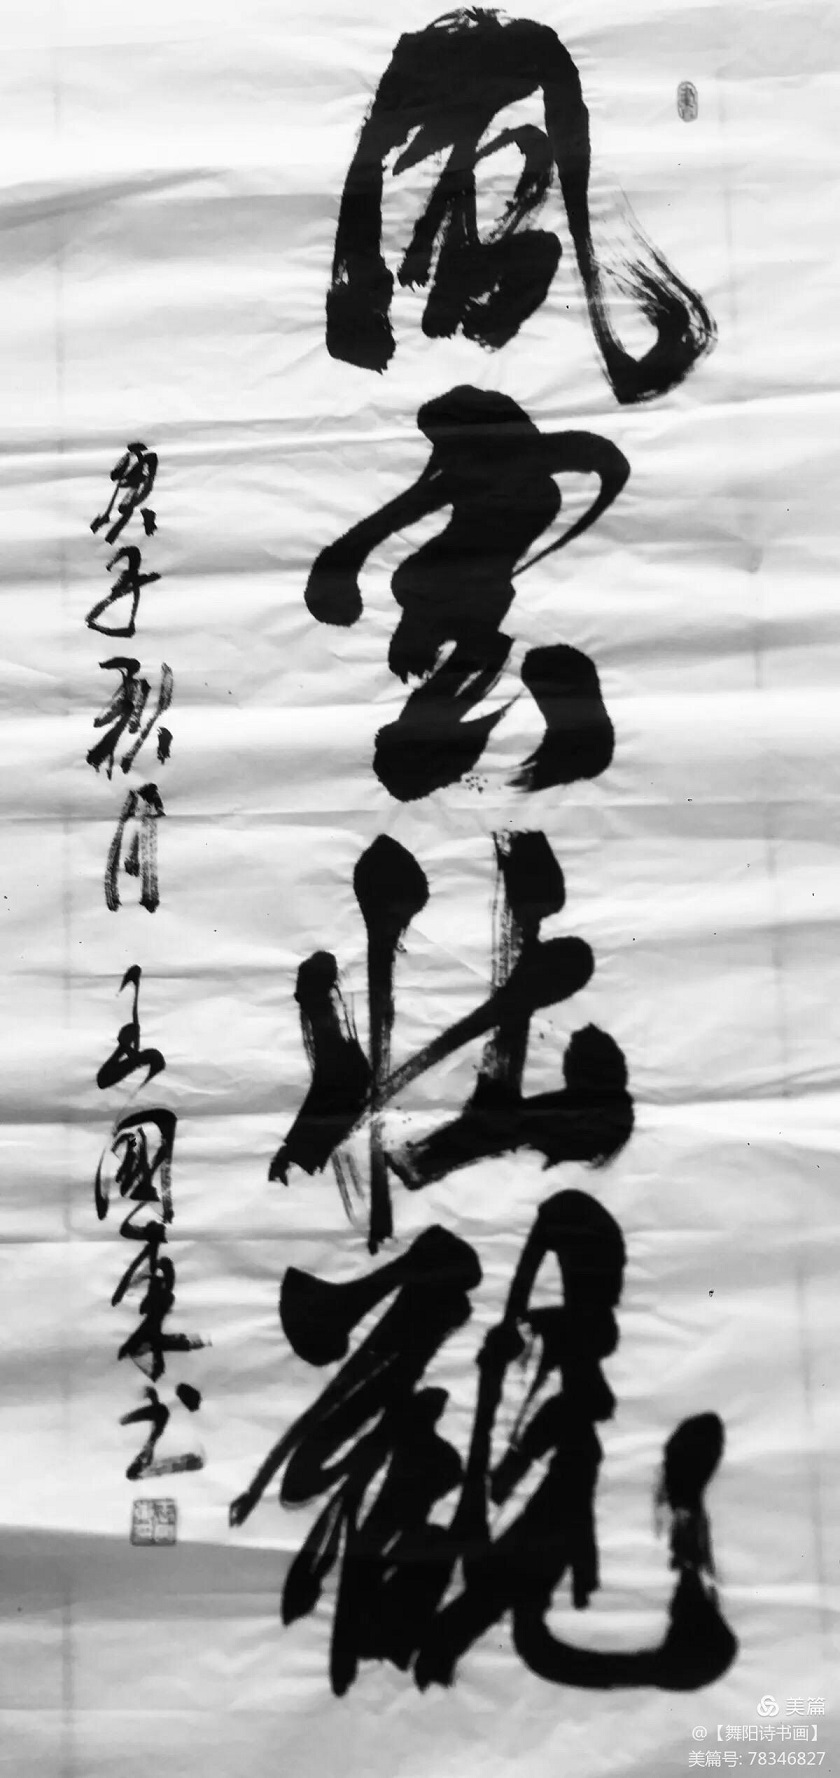 風雲壯觀
庚子秋月 王國東书
美篇
@【舞阳诗书画】
美篇号: 78346827